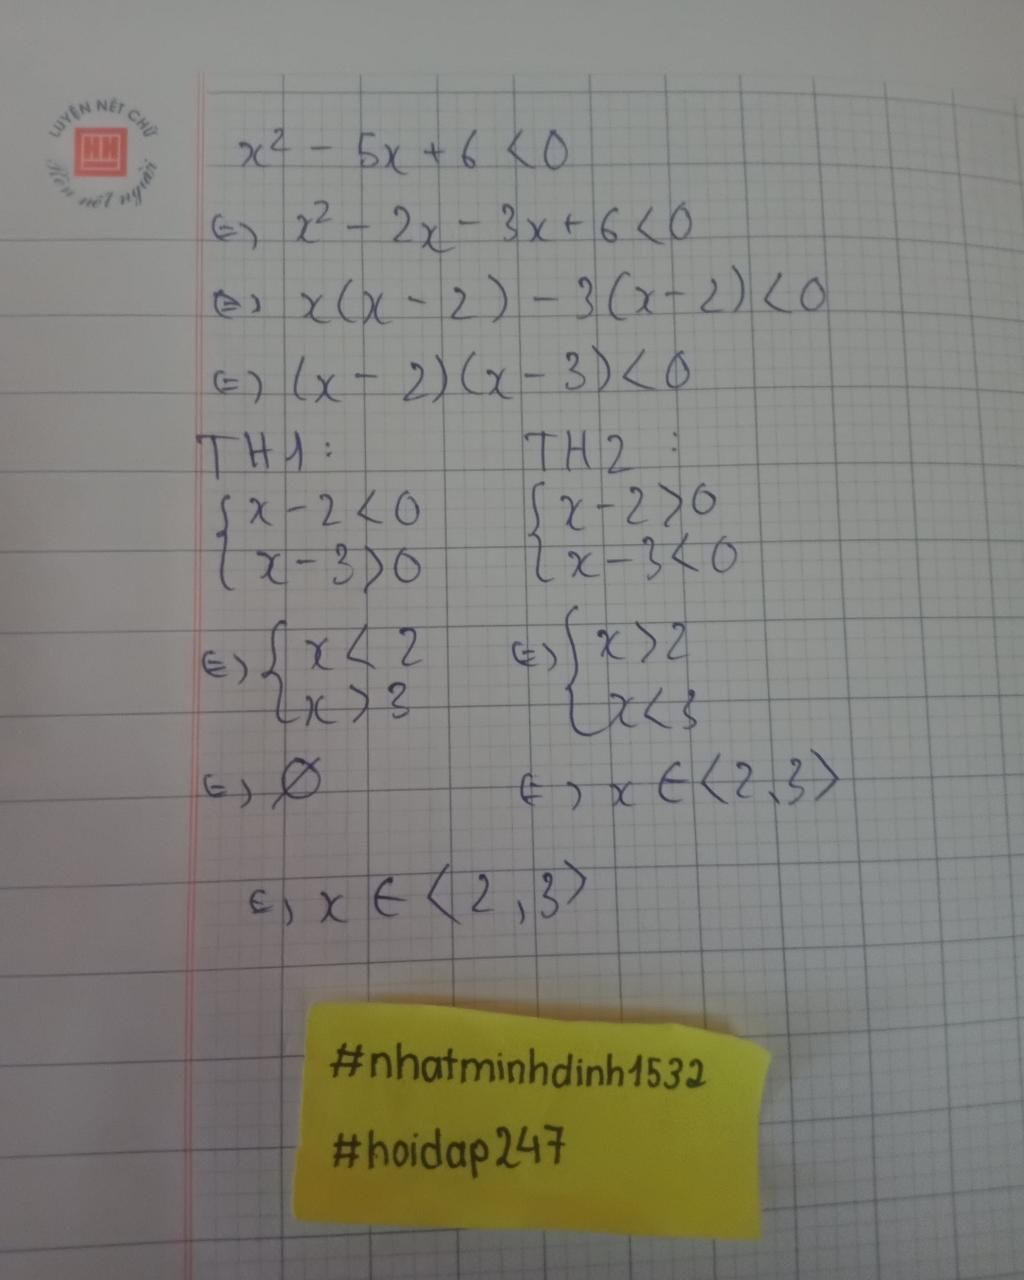 LUYỆN NÉT CHỮ
HH
Rèn nết người
x² - 5x + 6 < 0
⇔ x² - 2x - 3x + 6 < 0
⇔ x(x - 2) - 3(x - 2) < 0
⇔ (x - 2)(x - 3) < 0
TH1: TH2:
{ x - 2 < 0 { x - 2 > 0
{ x - 3 > 0 { x - 3 < 0
⇔ { x < 2 ⇔ { x > 2
{ x > 3 { x < 3
⇔ ∅ ⇔ x ∈ ⟨2,3⟩
⇔ x ∈ ⟨2,3⟩
#nhatminhdinh1532
#hoidap247